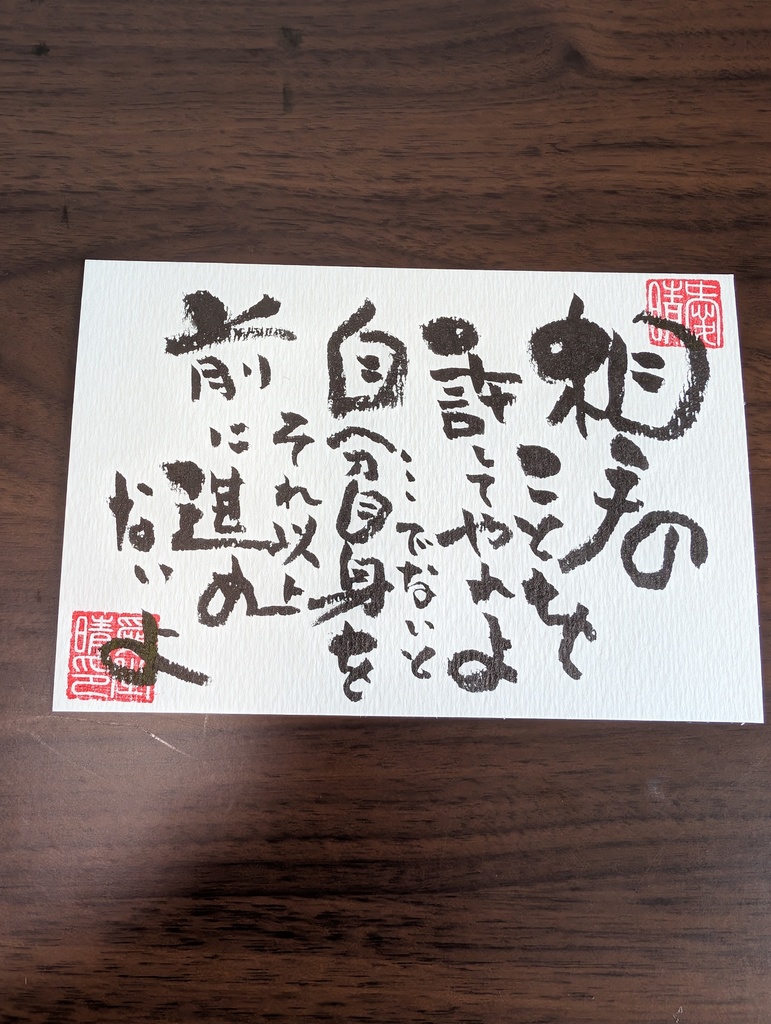 相手の
ことを
許してやれよ
ここでないと
自分自身を
それ以上
前に進め
ないよ